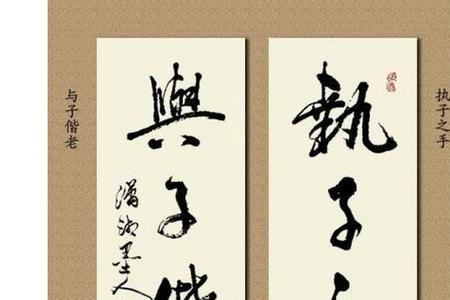 执子之手
執子之
與子偕
瀟湘墨人
与子偕老